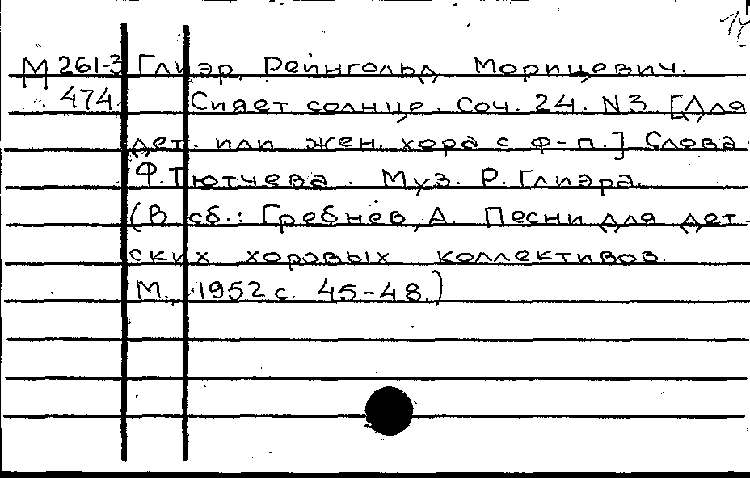 М 261-3 Глиэр, Рейнгольд Морицевич.
474 Сияет солнце. Соч. 24. N3 [Для
дет. или жен. хора с ф-п.] Слова
Ф. Тютчева. Муз. Р. Глиэра.
(В сб.: Гребнев, А. Песни для дет
ских хоровых коллективов.
М., 1952 с. 45-48.)